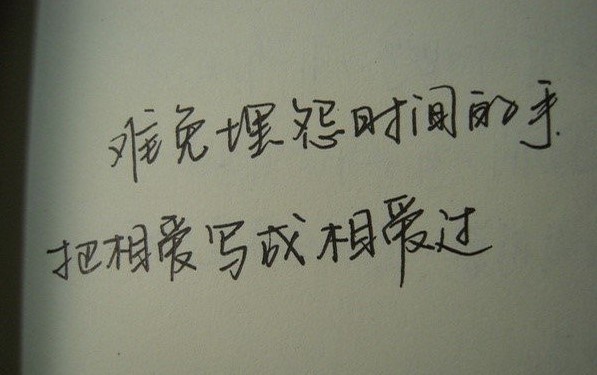 难免埋怨时间的手.
把相爱写成相爱过